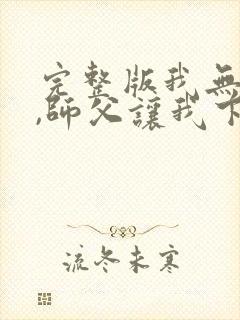 完整版我無
,師父讓我下
流冬未寒